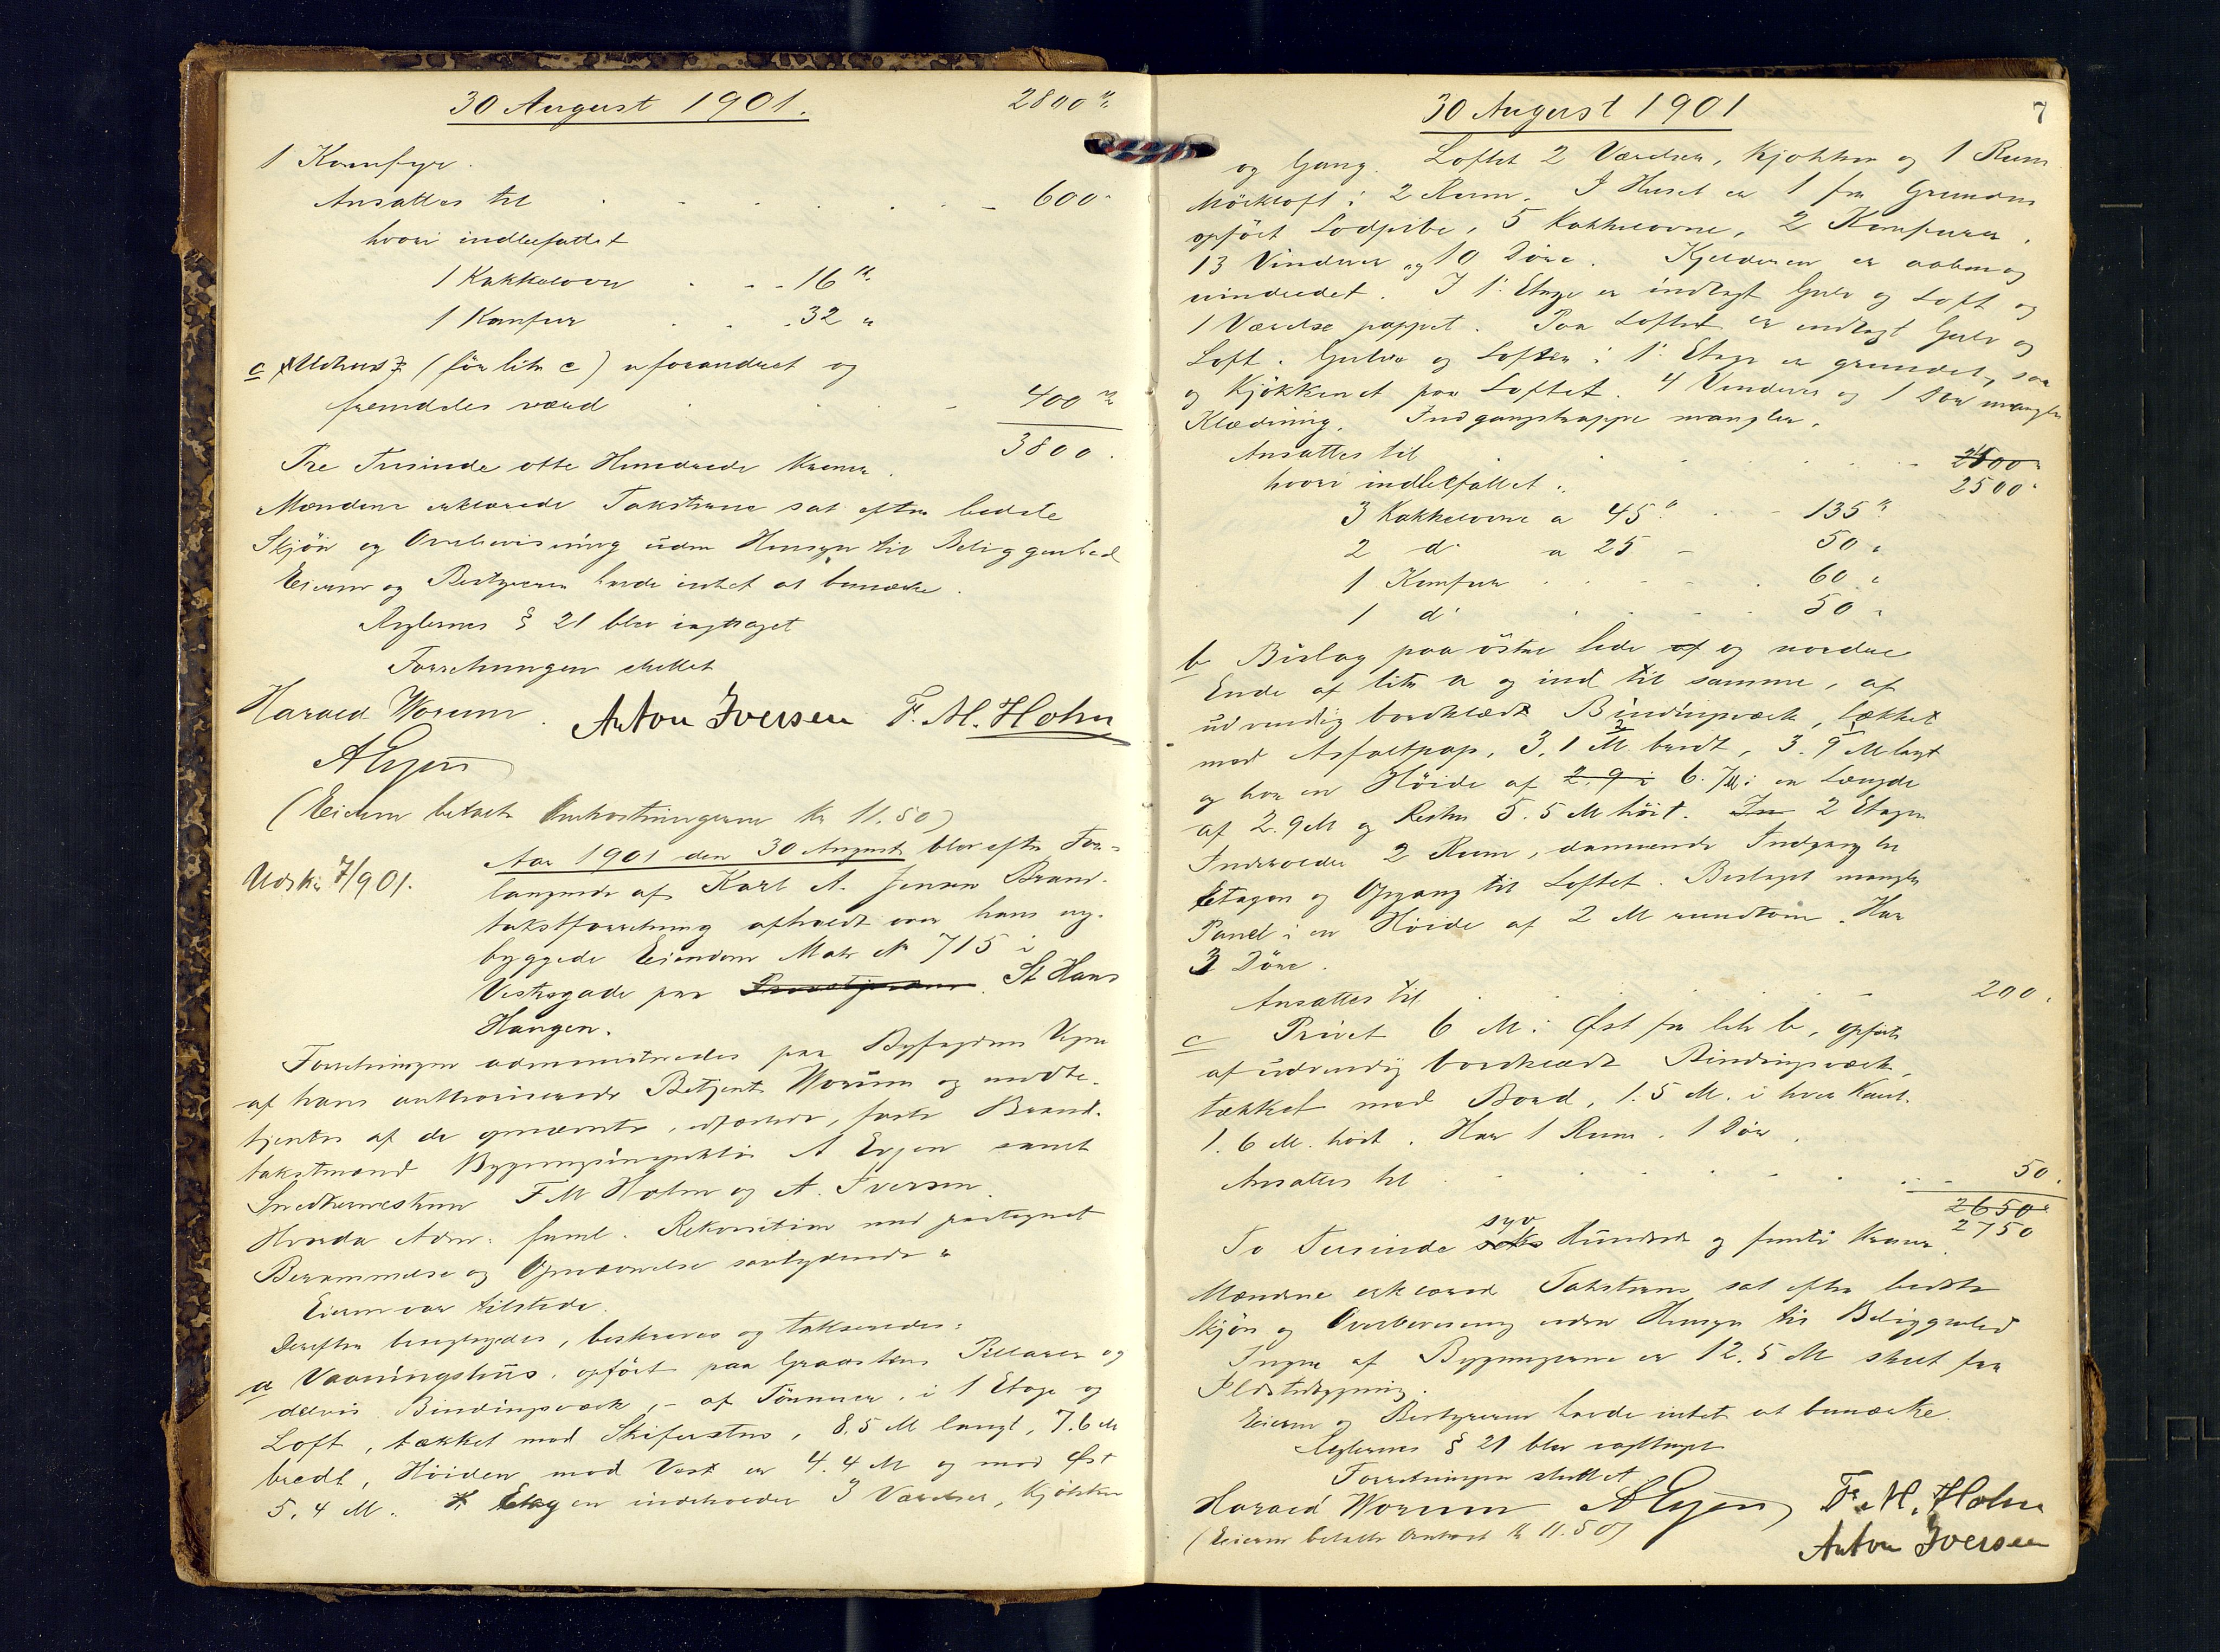 30 August 1901.
2800 Kr
1 Komfyr.
Ansattes til 600"
hvori indbefattet
1 Kakkelovn 16 Kr
1 Komfur 32 "
c Udhus (før litr c) uforandret og
fremdeles værd 400 Kr
3800.
Tre Tusinde otte Hundrede Kroner.
Mændene erklærede Taksterne sat efter bedste
Skjøn og Overbevisning uden Hensyn til Beliggenhed
Eieren og Bestyreren havde intet at bemærke.
Reglernes § 21 blev iagttaget
Forretningen sluttet
Harald Worum. Anton Iversen F. M. Holm
A Evjen
(Eieren betalte Omkostningerne Kr 11.50)
Udskr 7/901.
Aar 1901 den 30 August blev efter For-
langende af Karl A. Jensen Brand-
takstforretning afholdt over hans ny-
byggede Eiendom Matr № 715 i
Vestregade paa St Hans
Haugen.
Forretningen administreredes paa Byfogdens Vegne
af hans authoriserede Betjent Worum og medbe-
tjentes af de opnævnte, edfæstede, faste Brand-
takstmænd Bygningsinspektør A Evjen samt
Snedkermestrene F M Holm og A. Iversen.
Hvorda Adm. freml. Rekvisition med paategnet
Berammelse og Opnævnelse saalydende "
Eieren var tilstede.
Derefter besigtigedes, beskreves og takseredes:
a Vaaningshus, opført paa Graastens Pillarer og
delvis Bindingsværk, – af Tømmer, i 1 Etage og
Loft, tækket med Skifersten, 8.5 M langt, 7.6 M
bredt, Høiden mod Vest er 4.4 M og mod Øst
5.4 M. Etagen indeholder 3 Værelser, Kjøkken
30 August 1901
7
og Gang. Loftet 2 Værelser, Kjøkken og 1 Rum
Mørkloft i 2 Rum. I Huset er 1 fra Grunden
opført Lodpibe, 5 Kakkelovne, 2 Komfurer,
13 Vinduer og 10 Døre. Kjelderen er aaben og
uindredet. I 1' Etage er indlagt Gulv og Loft og
1 Værelse pappet. Paa Loftet er indlagt Gulv og
Loft. Gulve og Lofter i 1' Etage er grundet, saa
og Kjøkkenet paa Loftet. 4 Vinduer og 1 Dør mangler
Klædning. Indgangstrappe mangler.
Ansattes til 2400"
hvori indbefattet: 2500"
3 Kakkelovne a 45" 135 Kr
2 do a 25 – 50 "
1 Komfur 60 "
1 do 50 "
b Bislag paa østre Side af og nordre
Ende af litr a og ind til samme, af
udvendig bordklædt Bindingsværk, tækket
med Asfaltpap, 3.1 M bredt, 3.9 M langt
og har en Høide af 2.9 i 6.7 M i en Længde
af 2.9 M og Resten 5.5 M høit. 2 Etager
Indeholder 2 Rum, dannende Indgang til
Etagen og Opgang til Loftet. Bislaget mangler
Panel i en Høide af 2 M rundtom. Har
3 Døre.
Ansattes til 200.
c Privet 6 M. i Øst fra litr b, opført
af udvendig bordklædt Bindingsværk,
tækket med Bord, 1.5 M. i hver Kant.
1.6 M. høit. Har 1 Rum. 1 Dør.
Ansattes til 50.
2650"
To Tusinde seks syv Hundrede og femti Kroner 2750
Mændene erklærede Taksterne sat efter bedste
Skjøn og Overbevisning uden Hensyn til Beliggenhed
Ingen af Bygningerne er 12.5 M skilt fra
Ildstedbygning.
Eieren og Bestyreren havde intet at bemærke.
Reglernes § 21 blev iagttaget
Forretningen sluttet
Harald Worum A Evjen Fr. M. Holm
(Eieren betalte Omkost Kr 11.50) Anton Iversen